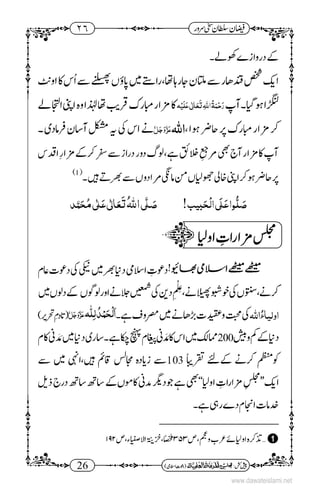 فیضانِ سلطان سخی سرور ۲۶
کے دروازے کھولے۔
ایک شخص قندھار سے ملتان جارہا تھا، راستے میں پاؤں پھسلنے سے اُس کا اونٹ
لنگڑا ہوگیا۔ آپ رَحْمَۃُ اللہِ تَعَالٰی عَلَیْہ کا مزار مبارک قریب تھا لہٰذا وہ اپنی التجا لے
کر مزار مبارک پر حاضر ہوا، اللہ عَزَّوَجَلَّ نے اس کی یہ مشکل آسان فرمادی۔
آپ کا مزار آج بھی مرجعِ خلائق ہے، لوگ دور دراز سے سفر کرکے مزارِ اقدس
پر حاضر ہوکر اپنی خالی جھولیاں من مانگی مرادوں سے بھرتے ہیں۔ (1)
صَلُّوا عَلَی الْحَبِیب! صَلَّی اللہُ تَعَالٰی عَلٰی مُحَمَّد
مجلس مزاراتِ اولیا
میٹھے میٹھے اسلامی بھائیو! دعوتِ اسلامی دنیا بھر میں نیکی کی دعوت عام
کرنے، سنتوں کی خوشبو پھیلانے، علمِ دین کی شمعیں جلانے اور لوگوں کے دلوں میں
اولیاءُ اللہ کی محبت و عقیدت بڑھانے میں مصروف ہے۔ اَلْحَمْدُ لِلّٰہ عَزَّوَجَلَّ (تادمِ تحریر)
دنیا کے کم و بیش 200 ممالک میں اس کا مَدَنی پیغام پہنچ چکا ہے۔ ساری دنیا میں مَدَنی کام
کو منظم کرنے کے لئے تقریباً 103 سے زیادہ مجالس قائم ہیں، انہی میں سے
ایک "مجلسِ مزاراتِ اولیا" بھی ہے جو دیگر مدنی کاموں کے ساتھ ساتھ درج ذیل
خدمات انجام دے رہی ہے۔
1 تذکرہ اولیائے عرب و عجم، ص ۳۵۳ ملخصًا، خزینۃ الاصفیاء، ص ۱۹۲
26
www.dawateislami.net